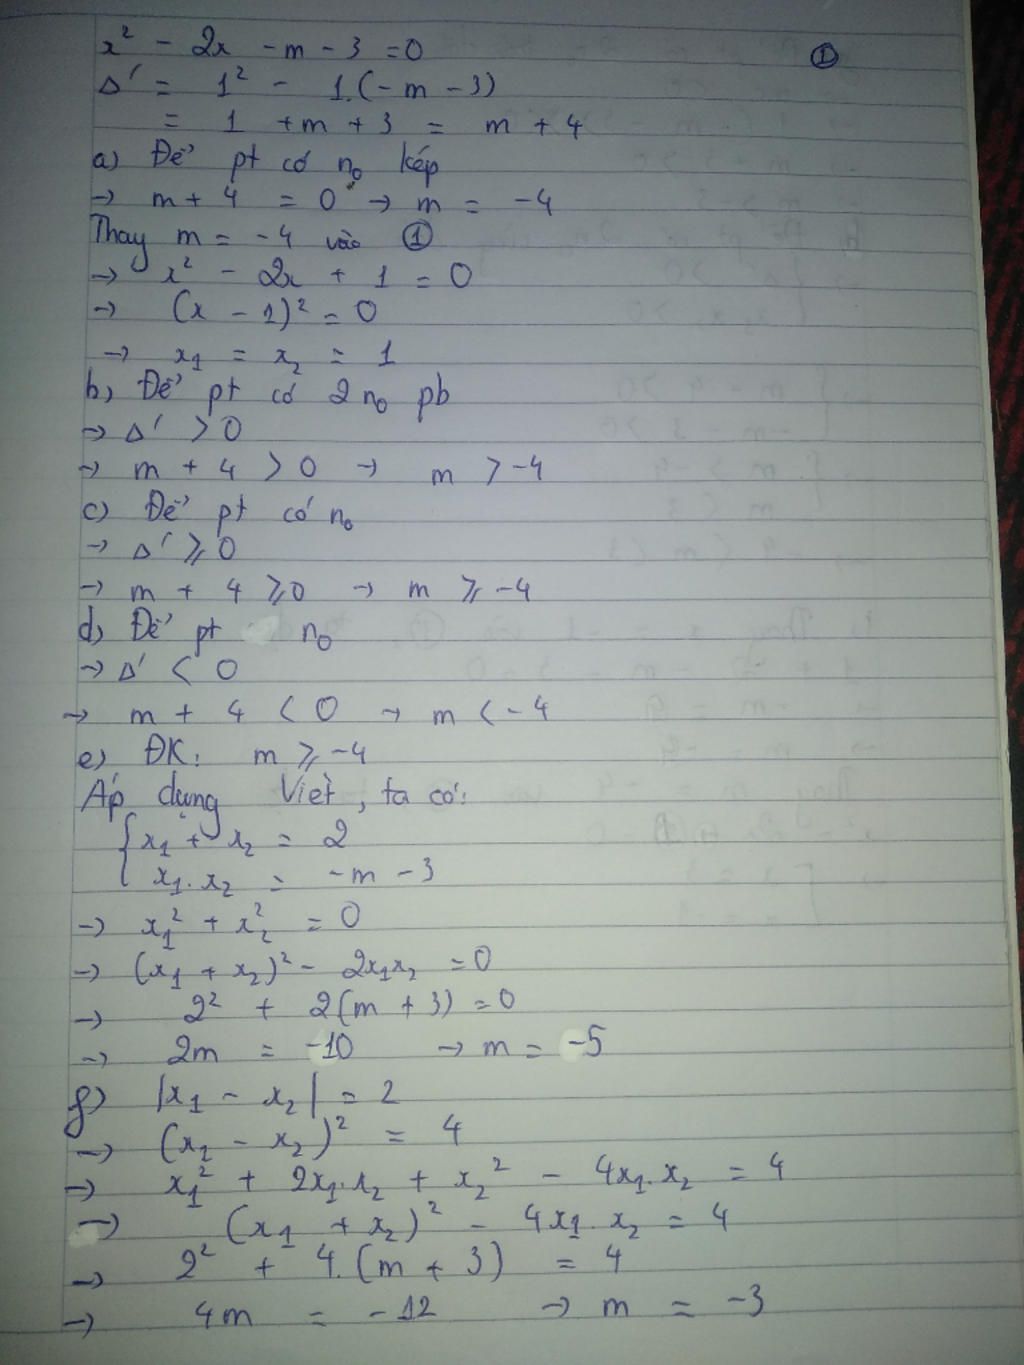 x² - 2x - m - 3 = 0 ①
Δ' = 1² - 1.(-m - 3)
= 1 + m + 3 = m + 4
a) Để pt có n₀ kép
→ m + 4 = 0 → m = -4
Thay m = -4 vào ①
→ x² - 2x + 1 = 0
→ (x - 1)² = 0
→ x₁ = x₂ = 1
b) Để pt có 2 n₀ pb
→ Δ' > 0
→ m + 4 > 0 → m > -4
c) Để pt có n₀
→ Δ' ⩾ 0
→ m + 4 ⩾ 0 → m ⩾ -4
d) Để pt n₀
→ Δ' < 0
→ m + 4 < 0 → m < -4
e) ĐK: m ⩾ -4
Áp dụng Viet, ta có:
{ x₁ + x₂ = 2
x₁.x₂ = -m - 3
→ x₁² + x₂² = 0
→ (x₁ + x₂)² - 2x₁x₂ = 0
→ 2² + 2(m + 3) = 0
→ 2m = -10 → m = -5
f) |x₁ - x₂| = 2
→ (x₂ - x₂)² = 4
→ x₁² + 2x₁.x₂ + x₂² - 4x₁.x₂ = 4
→ (x₁ + x₂)² - 4x₁.x₂ = 4
→ 2² + 4.(m + 3) = 4
→ 4m = -12 → m = -3